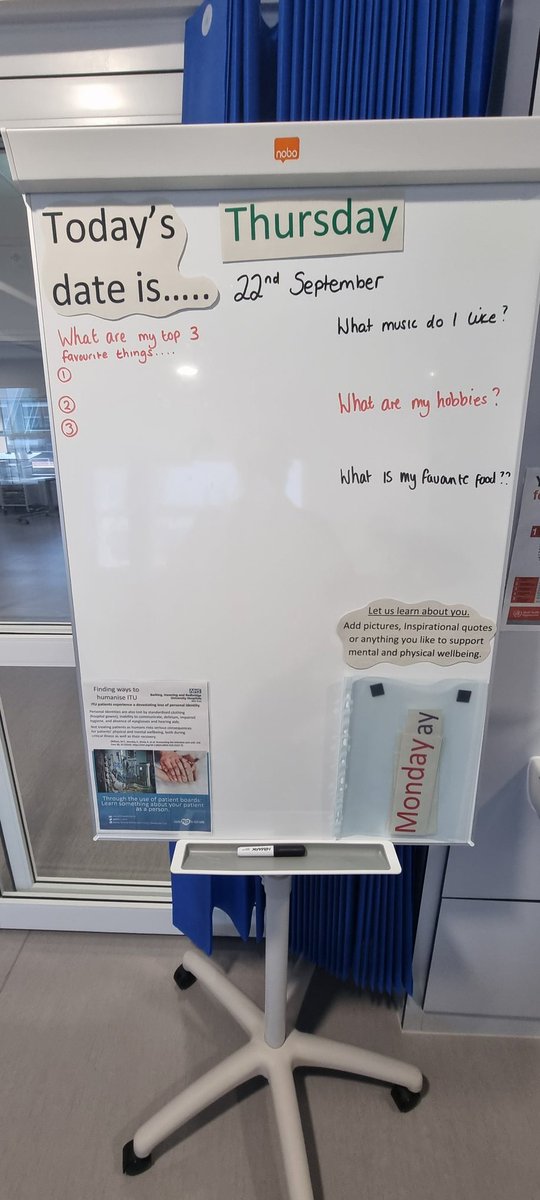 nobo
Today's
date is.....
Thursday
22nd September
What are my top 3
favourite things....
1
2
3
What music do I like?
What are my hobbies?
What is my favourite food??
Let us learn about you.
Add pictures, Inspirational quotes
or anything you like to support
mental and physical wellbeing.
Finding ways to
humanise ITU
NHS
Barking, Havering and Redbridge
University Hospitals
ITU patients experience a devastating loss of personal identity
Through the use of patient boards:
Learn something about your patient
as a person.
Monday
ay